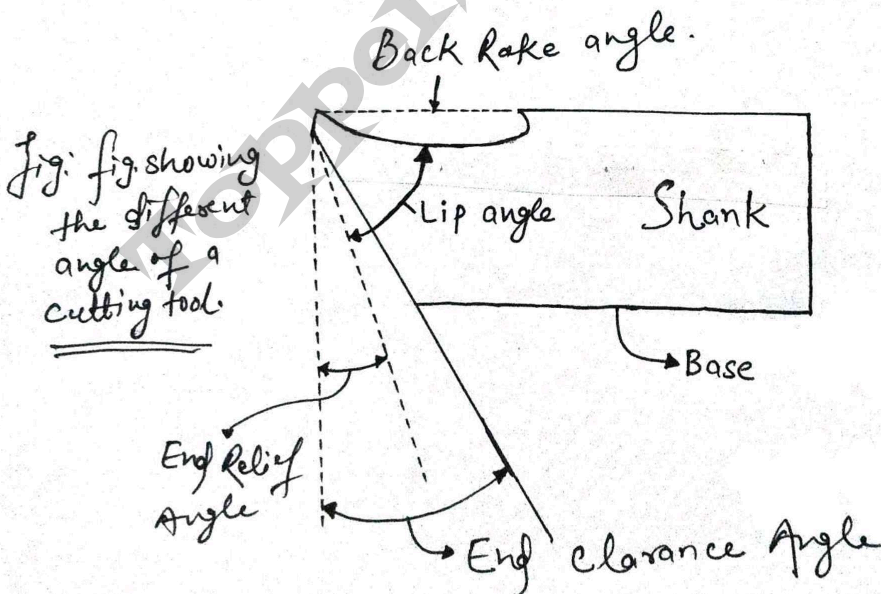 Back Rake angle.
fig: fig. showing
the different
angle of a
cutting tool.
Lip angle
Shank
Base
End Relief
Angle
End Clarance Angle
Topper